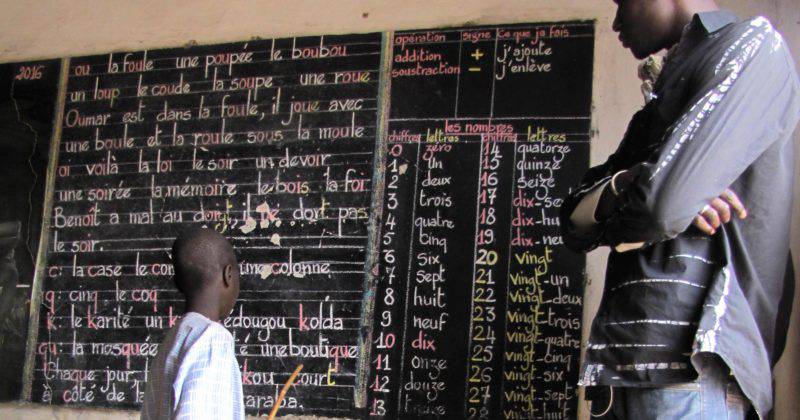 2016
ou la foule une poupée le boubou
un loup le coude la soupe une roue
Oumar est dans la foule, il joue avec
une boule et la roule sous la moule
oi voilà la loi le soir un devoir
une soirée la mémoire le bois la foi
Benoît a mal au doigt, il ne dort pas
le soir.
c: la case le colonne
q: cinq le coq
k: le karité un édougou kolda
qu: la mosquée une boutique
Chaque jour, court
à côté de la
opération Signe Ce que je fais
addition + j'ajoute
soustraction - j'enlève
les nombres
chiffres lettres chiffres lettres
0 zéro 14 quatorze
1 un 15 quinze
2 deux 16 seize
3 trois 17 dix-se
4 quatre 18 dix-hu
5 cinq 19 dix-neu
6 six 20 vingt
7 sept 21 vingt-un
8 huit 22 vingt-deux
9 neuf 23 vingt-trois
10 dix 24 vingt-quatre
11 onze 25 vingt-cinq
12 douze 26 vingt-six
13 27 vingt-sept
28 vingt-huit